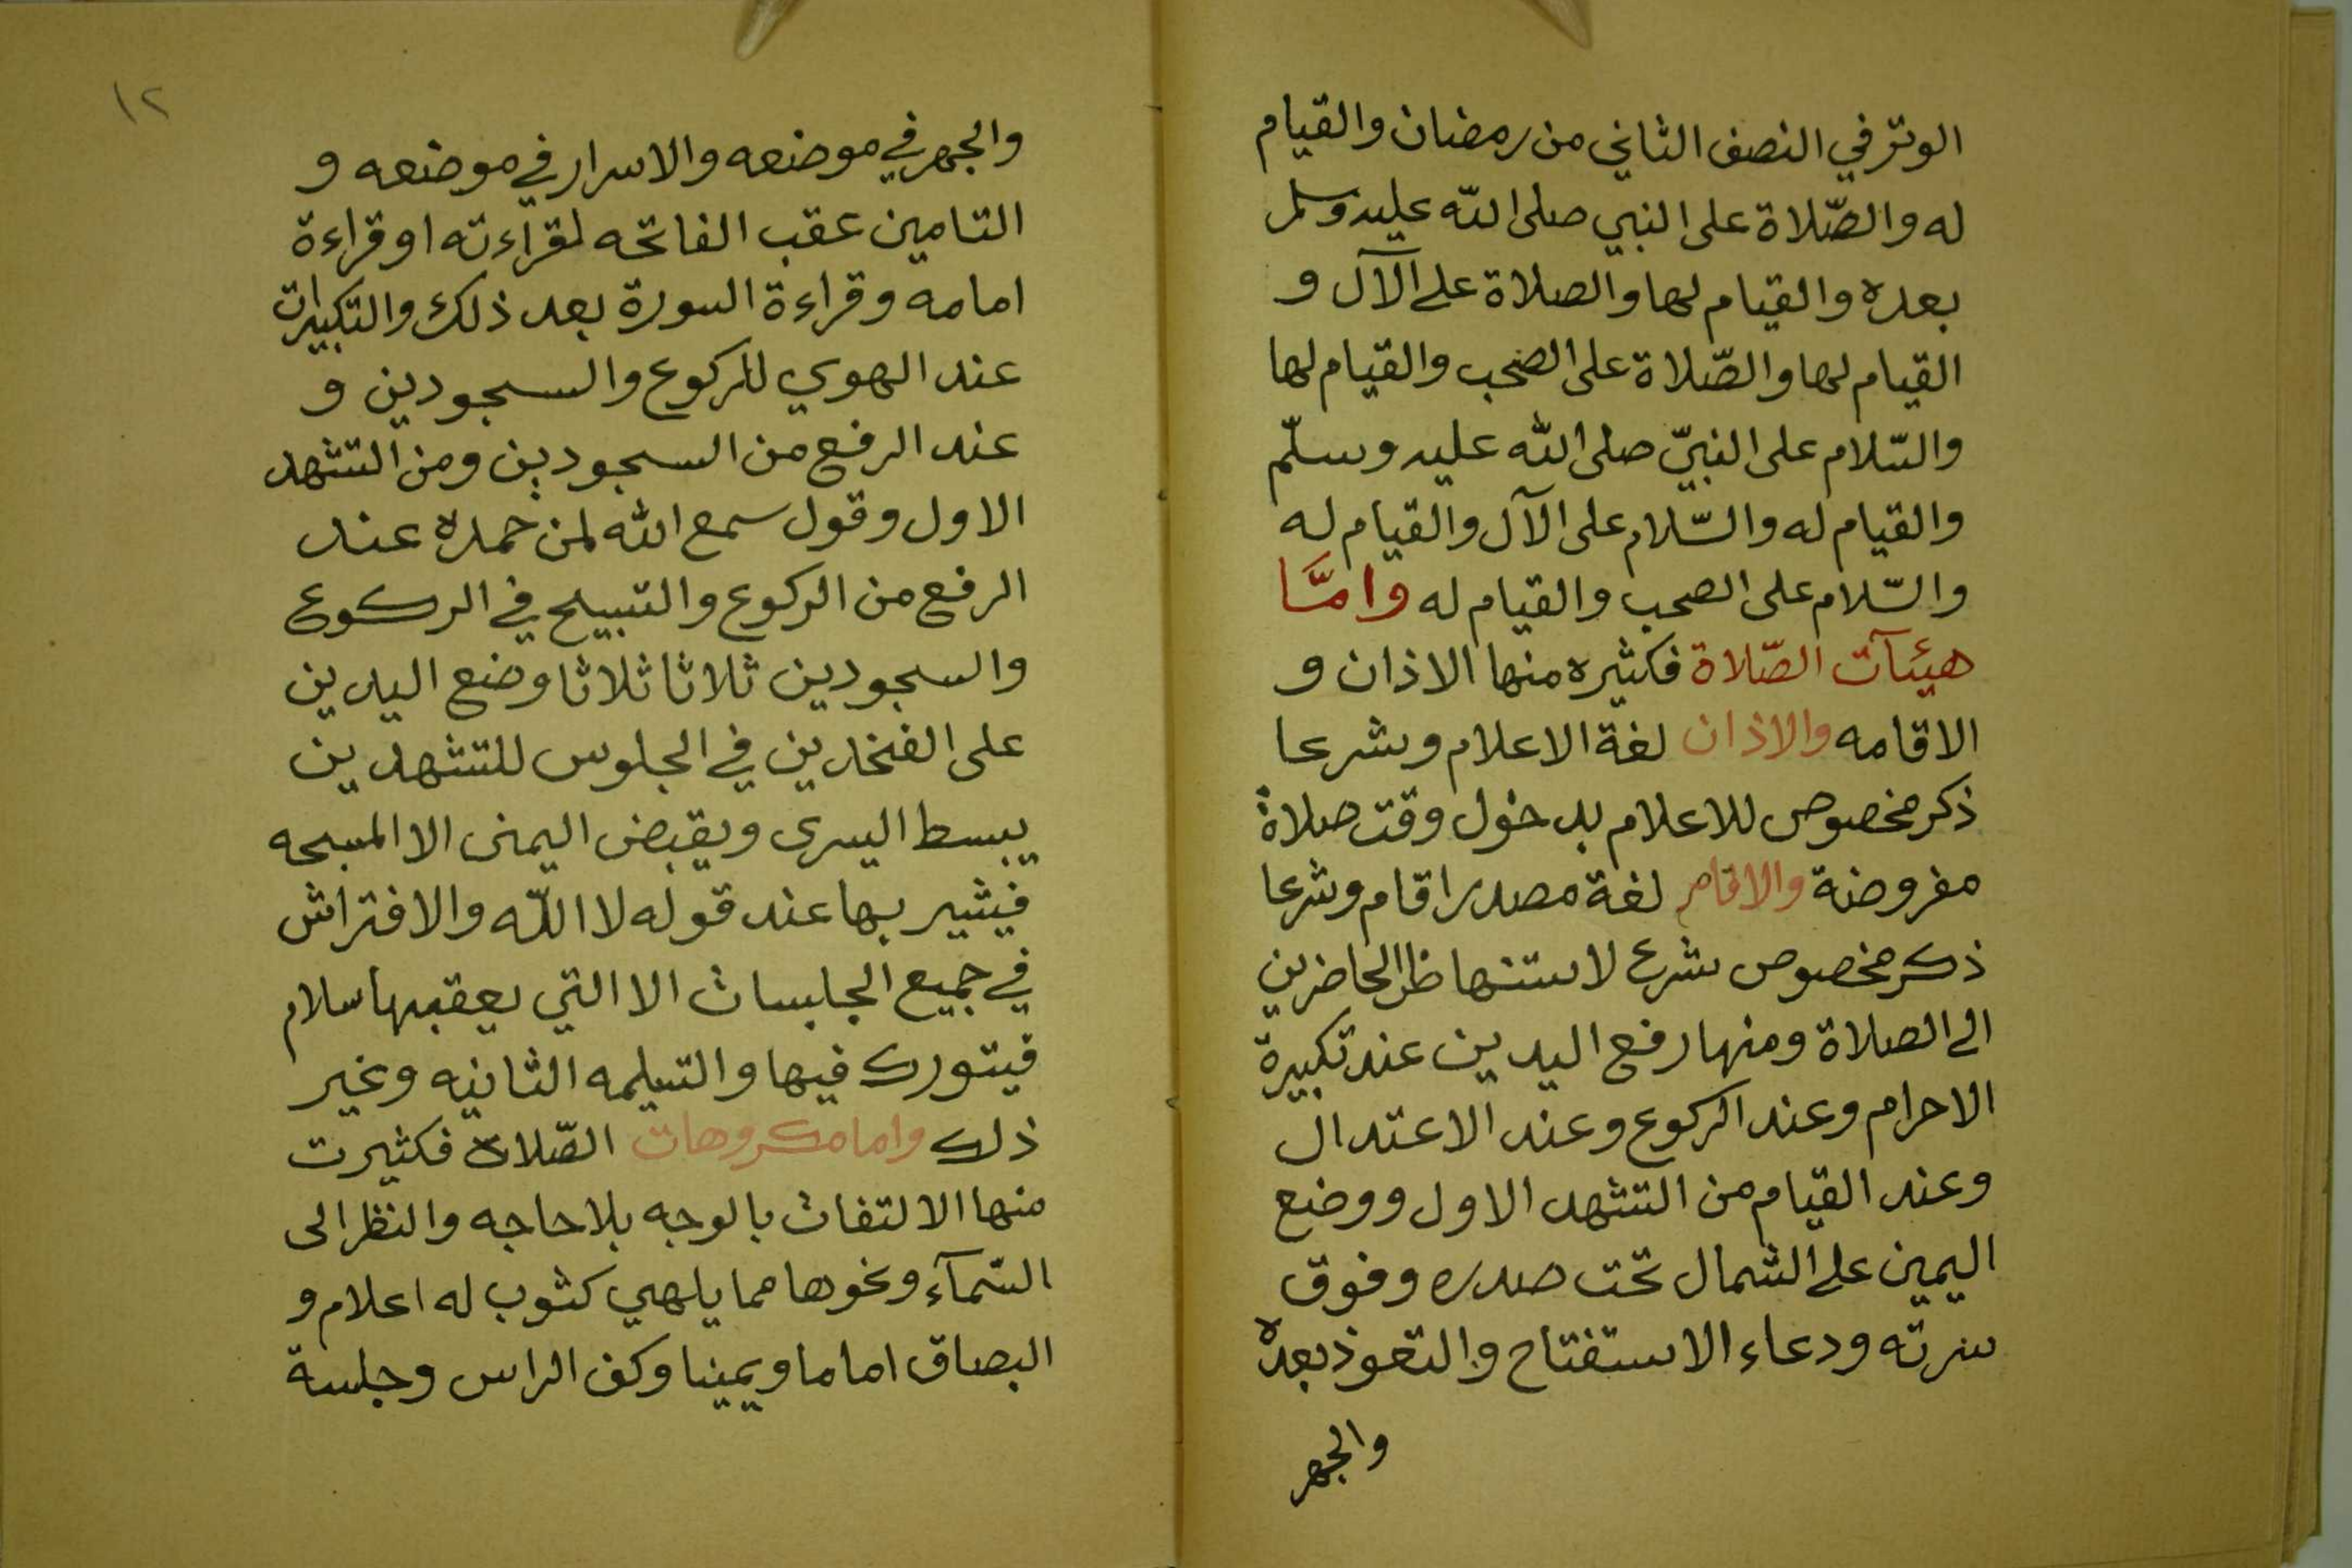 الوتر في النصف الثاني من رمضان والقيام
له والصّلاة على النبي صلى الله عليه وسلم
بعده والقيام لها والصلاة على الآل و
القيام لها والصّلاة على الصحب والقيام لها
والسّلام على النبيّ صلى الله عليه وسلّم
والقيام له والسّلام على الآل والقيام له
والسّلام على الصحب والقيام له وامّا
هيئآت الصّلاة فكثيره منها الاذان و
الاقامه والاذان لغة الاعلام وشرعا
ذكر مخصوص للاعلام بدخول وقت صلاة
مفروضة والاقام لغة مصدر اقام وشرعا
ذكر مخصوص شرع لاستنهاظ الحاضرين
الى الصلاة ومنها رفع اليدين عند تكبيرة
الاحرام وعند الركوع وعند الاعتدال
وعند القيام من التشهد الاول ووضع
اليمين على الشمال تحت صدره وفوق
سرته ودعاء الاستفتاح والتعوذ بعده
والجهر
١٢
والجهر في موضعه والاسرار في موضعه و
التامين عقب الفاتحه لقراءته او قراءة
امامه وقراءة السورة بعد ذلك والتكبيرات
عند الهوي للركوع والسجودين و
عند الرفع من السجودين ومن التشهد
الاول وقول سمع الله لمن حمده عند
الرفع من الركوع والتسبيح في الركوع
والسجودين ثلاثا ثلاثا وضع اليدين
على الفخذين في الجلوس للتشهدين
يبسط اليسرى ويقبض اليمنى الا المسبحه
فيشير بها عند قوله لا الله والافتراش
في جميع الجلسات الا التي يعقبها سلام
فيتورك فيها والتسليمه الثانيه وغير
ذلك واما مكروهات الصّلاة فكثيرت
منها الالتفات بالوجه بلا حاجه والنظر الى
السّمآء ونحوها مما يلهي كثوب له اعلام و
البصاق اماما ويمينا وكف الراس وجلسة